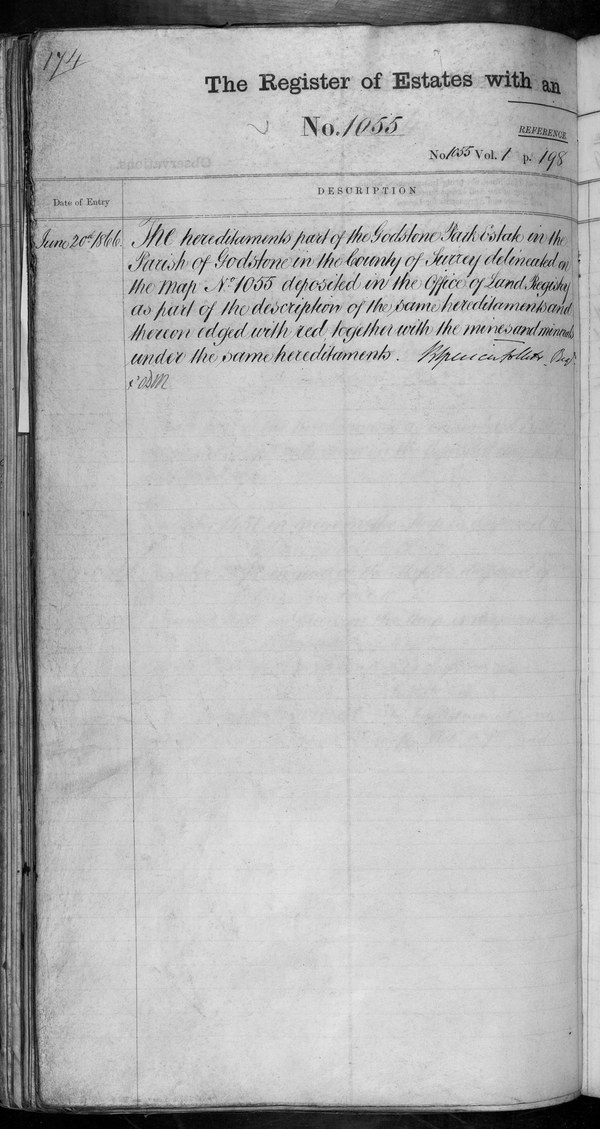 174
The Register of Estates with an
No. 1055
REFERENCE
No 1055 Vol. 1 p. 198
DESCRIPTION
Date of Entry
June 20th 1866. The hereditaments part of the Godstone Park Estate in the
Parish of Godstone in the County of Surrey delineated on
the Map No. 1055 deposited in the Office of Land Registry
as part of the description of the same hereditaments and
thereon edged with red together with the mines and minerals
under the same hereditaments.